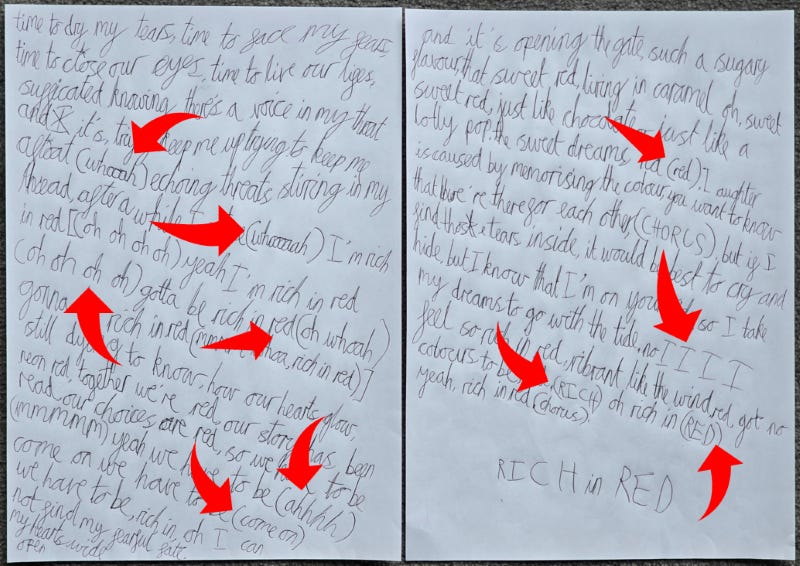 time to dry my tears, time to face my fears,
time to close our eyes, time to live our lifes,
sufficated knowing there's a voice in my throat
and it's, trying keep me up trying to keep me
afloat (whoooah) echoing threats, stiring in my
thread, after a while (whooooah) I'm rich
in red [(oh oh oh oh) yeah I'm rich in red
(oh oh oh oh) gotta be rich in red (oh whoah)
gonna rich in red ( whoa, rich in red)]
still to know, how our hearts glow,
neon red, together we're red, our story has, been
read, our choices are red, so we to be
(mmmmm) yeah we have to be (ahhhh)
come on we have to be (come on)
we have to be, rich in, oh I can
not find my fearful fate.
my hearts wide
open
and it's opening the gate, such a sugary
flavour, that sweet red, living in caramel oh, sweet
sweet red, just like chocolate or just like a
lolly pop, the sweet dreams, red (red) laughter
is caused by memorising the colour, you want to know
that we're there for each other (CHORUS), but if I
find those tears inside, it would be best to cry and
hide, but I know that I'm on your so I take
my dreams to go with the tide, no I I I I
feel so red, vibrant like the wind red, got no
colours to be, (RICH) oh rich in (RED)
yeah, rich in red (chorus).
RICH in RED